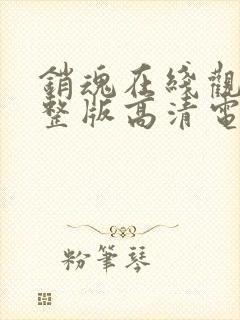 銷魂在綫觀
整版高清電
粉筆琴